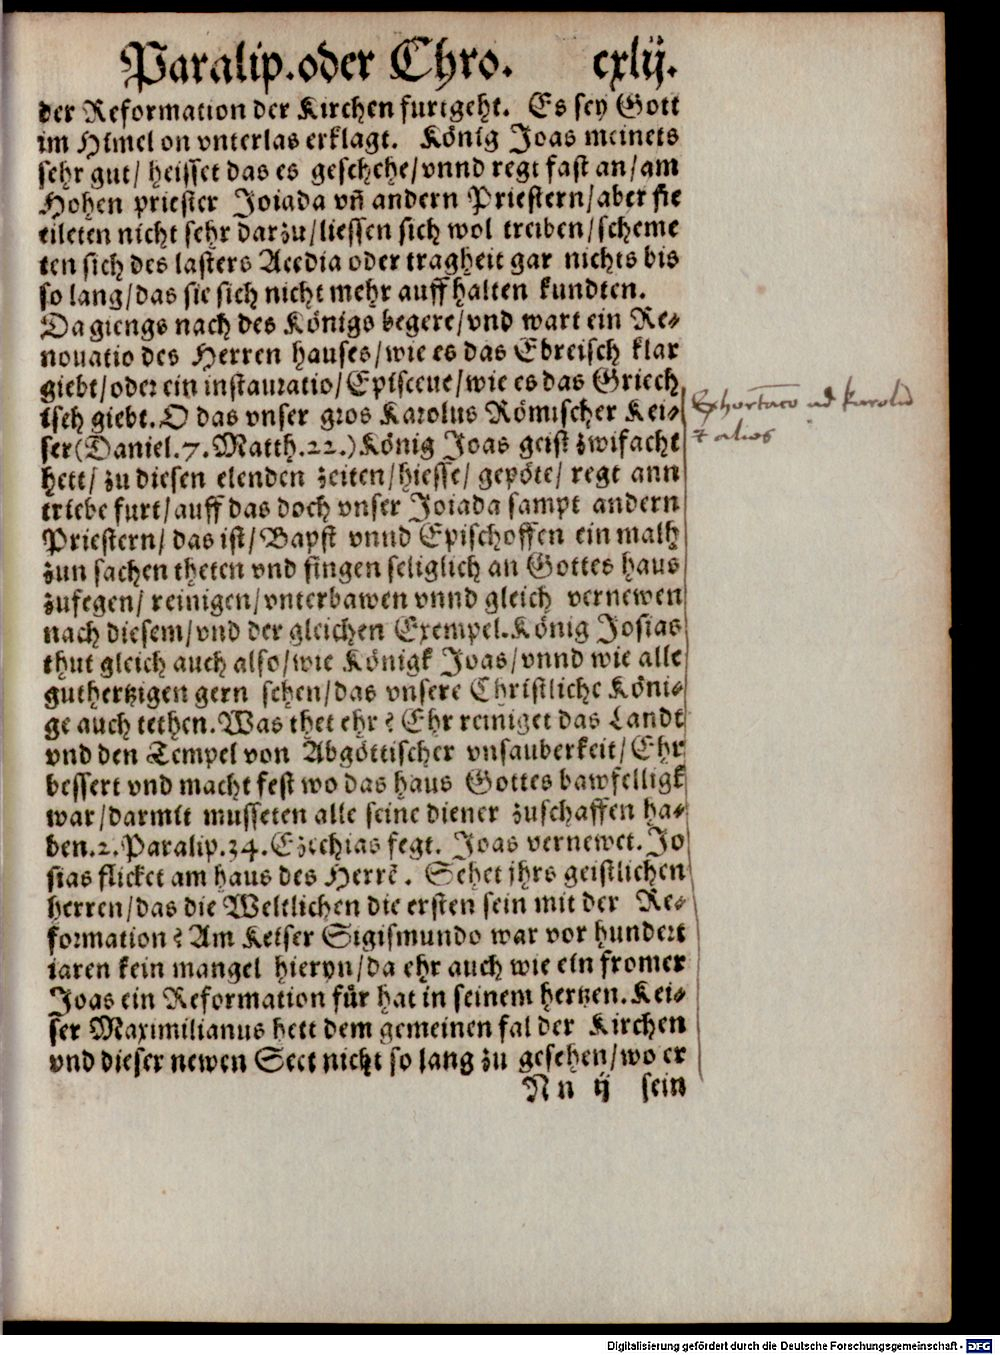 Paralip. oder Chro. cxlij.
der Reformation der Kirchen furtgeht. Es sey Gott
im Himel on vnterlas erklagt. König Joas meinets
sehr gut/ heisset das es geschehe/ vnnd regt fast an/ am
Hohen priester Joiada vn̄ andern Priestern/ aber sie
eileten nicht sehr darzu/ liessen sich wol treiben/ scheme
ten sich des lasters Acedia oder tragheit gar nichts bis
so lang/ das sie sich nicht mehr auff halten kundten.
Da giengs nach des Königs begere/ vnd wart ein Re⸗
nouatio des Herren hauses/ wie es das Ebreisch klar
giebt/ oder ein instauratio/ Episceue/ wie es das Griech
isch giebt. O das vnser gros Karolus Römischer Kei⸗
ser (Daniel. 7. Matth. 22.) König Joas geist zwifacht
hett/ zu diesen elenden zeiten/ hiesse/ gepöte/ regt ann
triebe furt/ auff das doch vnser Joiada sampt andern
Priestern/ das ist/ Bapst vnnd Epischoffen ein malh
zun sachen theten vnd fingen seliglich an Gottes haus
zufegen/ reinigen/ vnterbawen vnnd gleich vernewen
nach diesem/ vnd der gleichen Exempel. König Josias
thut gleich auch also/ wie Königk Joas/ vnnd wie alle
guthertzigen gern sehen/ das vnsere Christliche Köni⸗
ge auch tethen. Was thet ehr? Ehr reiniget das Landt
vnd den Tempel von Abgöttischer vnsauberkeit/ Ehr
bessert vnd macht fest wo das haus Gottes bawfelligk
war/ darmit musseten alle seine diener zuschaffen ha⸗
ben. 2. Paralip. 34. Ezechias fegt. Joas vernewet. Jo
sias flicket am haus des Herrē. Sehet jhrs geistlichen
herren/ das die Weltlichen die ersten sein mit der Re⸗
formation? Am Keiser Sigismundo war vor hundert
iaren kein mangel hieryn/ da ehr auch wie ein fromer
Joas ein Reformation für hat in seinem hertzen. Kei⸗
ser Maximilianus hett dem gemeinen fal der Kirchen
vnd dieser newen Sect nicht so lang zu gesehen/ wo er
N n ij sein
ad Karolū
alios
Digitalisierung gefördert durch die Deutsche Forschungsgemeinschaft - DFG